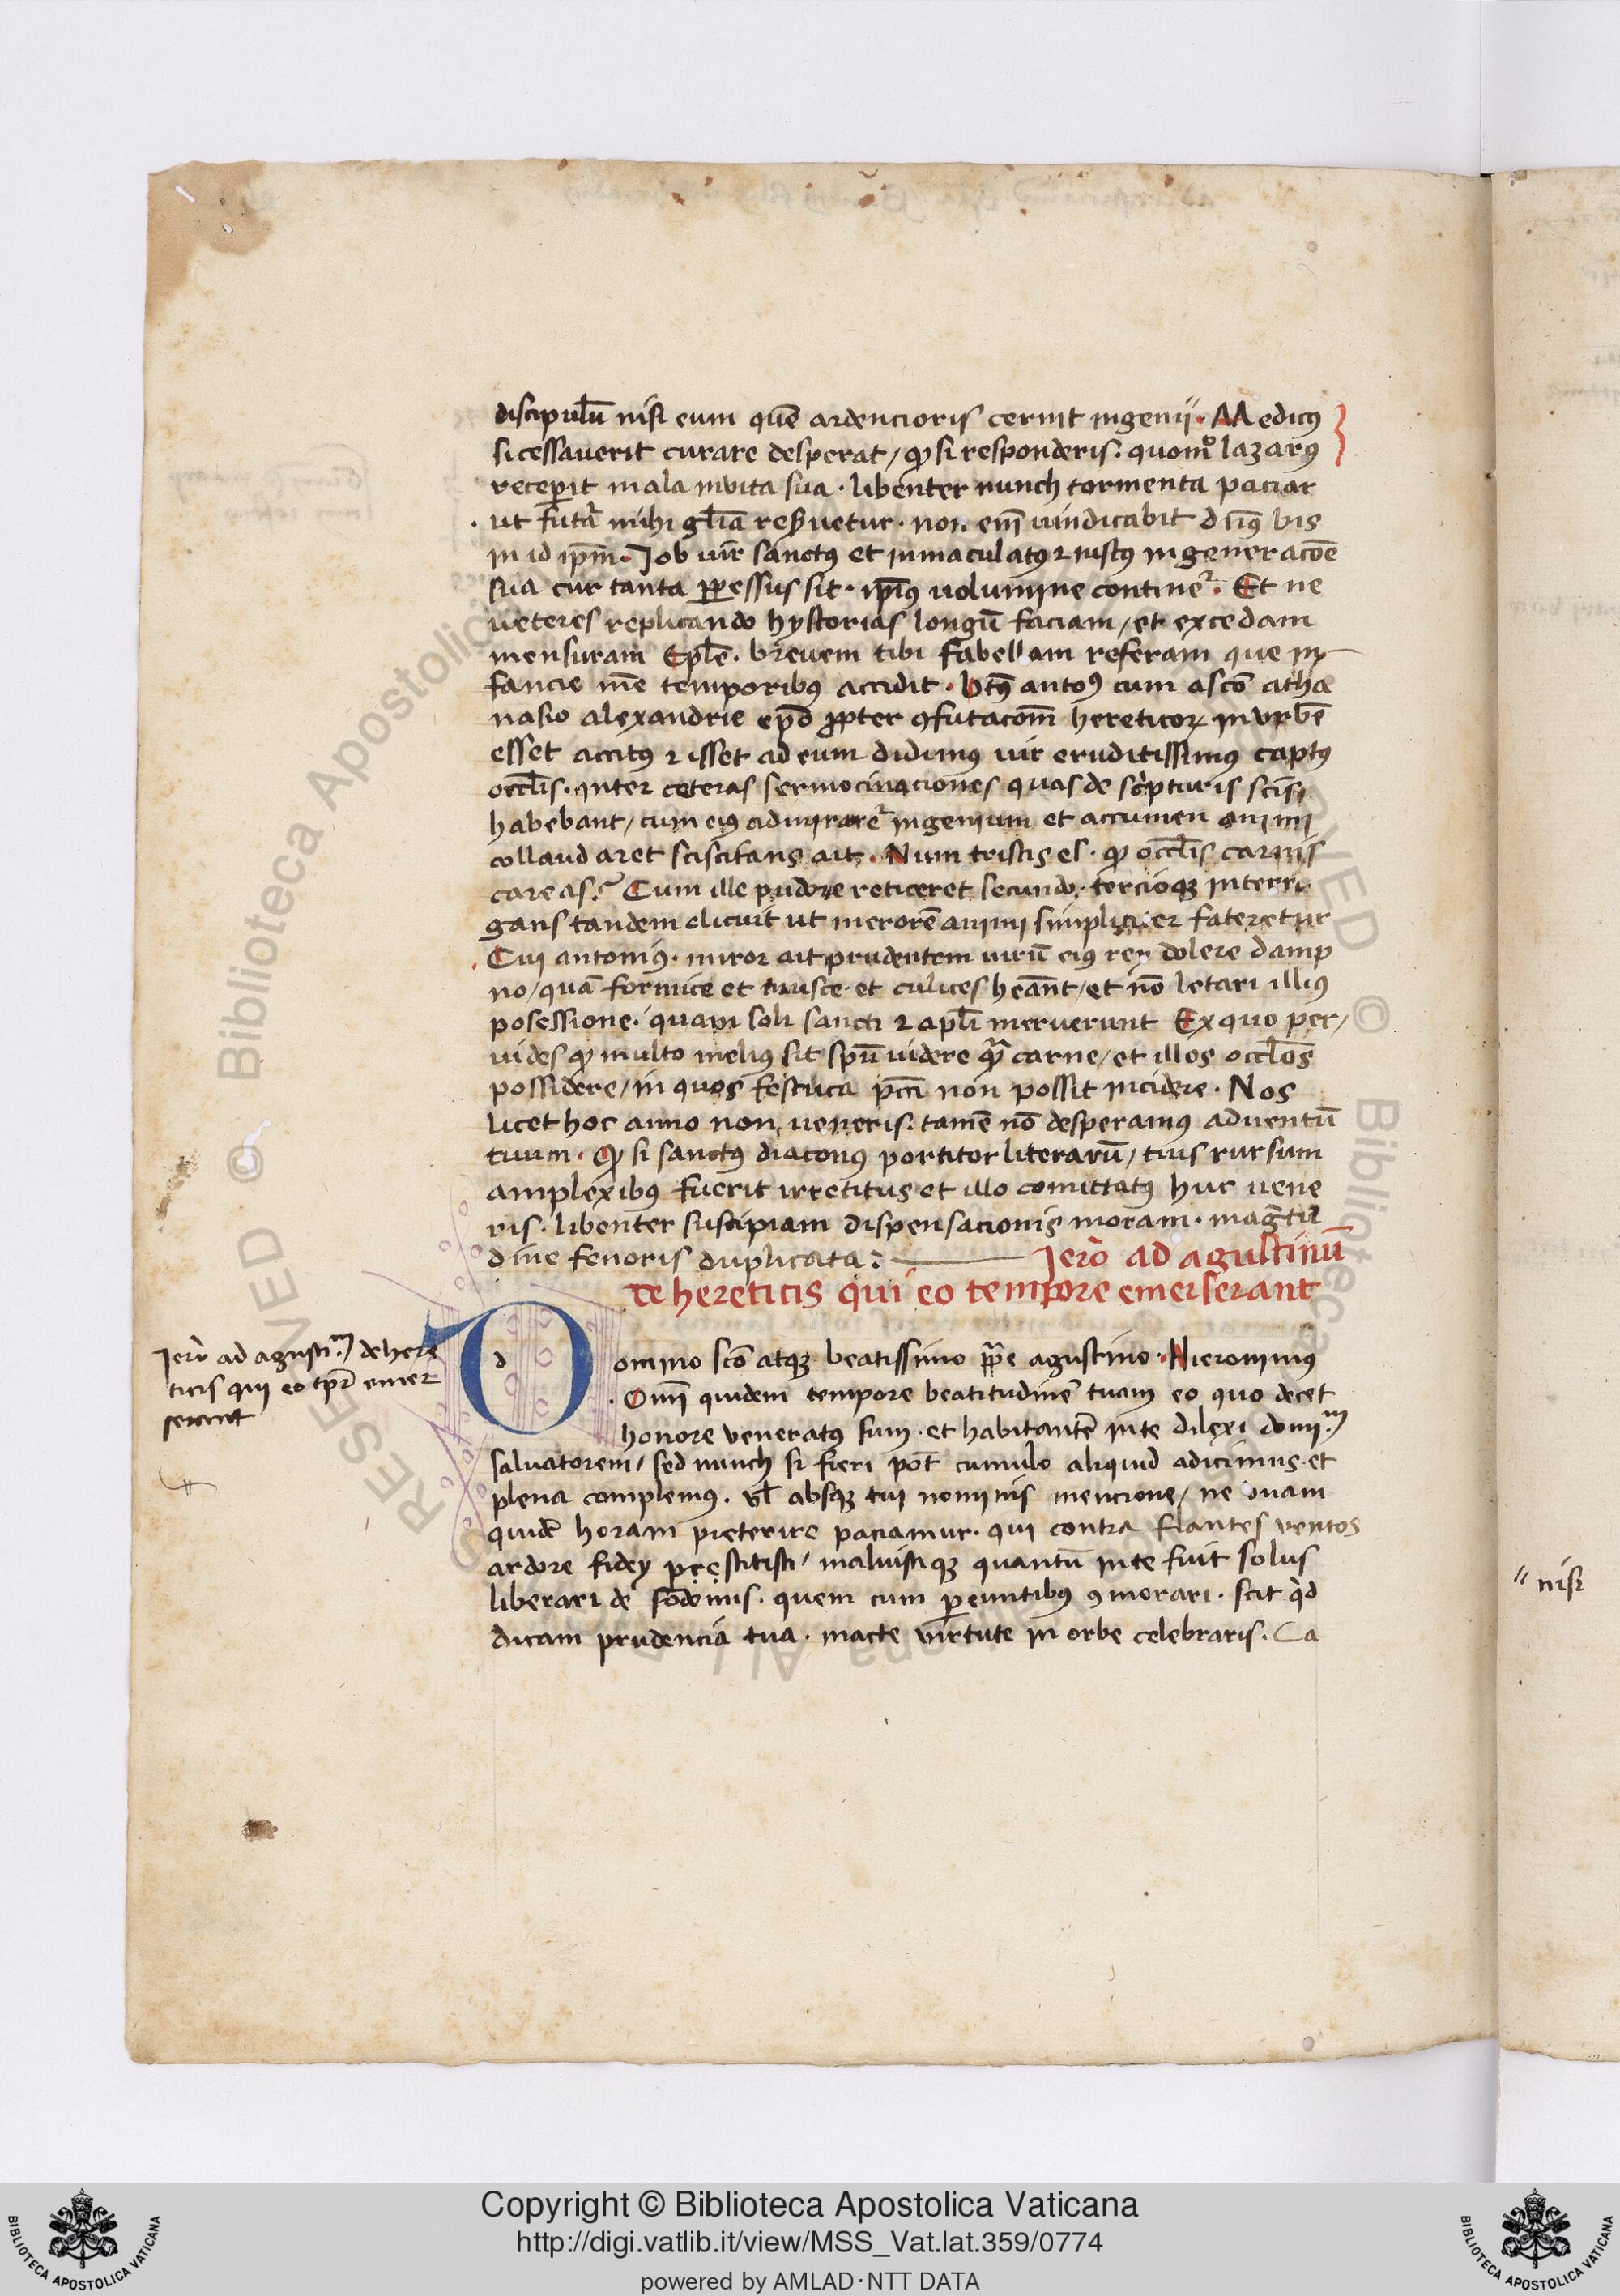 discipulū nisi eum quē ardencioris cernit ingenii. Medicꝰ
si cessauerit curare desperat / ꝙ si responderis: quomo lazarus
recepit mala in uita sua. libenter nunch tormenta paciar
ut futā mihi glīa reseruetur. non eī uindicabit dn̄s bis
in id ipm̄. Job uir sanctus et inmaculatꝰ ⁊ iustꝰ in generacōe
sua cur tanta ꝑpessus sit. ipīus uolumine continer. Et ne
ueteres replicando hystorias longū faciam / et excedam
mensuram Epl̄e. breuem tibi fabellam referam que in
fancie mē temporibꝰ accidit. btꝰ antoꝰ cum a scō atha
nasio alexandrie ep̄o ꝓpter ꝯfutacōm hereticoꝝ in vrbē
esset accitꝰ ⁊ isset ad eum didimus uir eruditissimus captꝰ
occl̄is. inter ceteras sermocinaciones quas de scripturis scīs
habebant / cum eiꝰ admirarer ingenium et accumen animi
collaudaret sciscitans ait. Num tristis es. ꝙ occl̄is carnis
careas? Cum ille pudore reticeret secundo. tercioqꝫ interro
gans tandem elicuit ut merorē animi simpliciter fateretur
Cui antoniꝰ. miror ait prudentem uirū eiꝰ rey dolere damp
no / quā formice et musce et culices hēant / et nō letari illiꝰ
posessione. quam soli sancti ⁊ apl̄i meruerunt Ex quo per/
uides ꝙ multo meliꝰ sit spū uidere quā carne / et illos occl̄os
possidere / in quos festuca pcci non possit incidere. Nos
licet hoc anno non ueneris. tamē nō desperamus aduentū
tuum. ꝙ si sanctꝰ diaconus portitor literarū / tuis rursum
amplexibꝰ fuerit irretitus et illo comittatꝰ huc uene
ris. libenter suscipiam dispensacionis moram. magntu
dine fenoris duplicata:
Jero ad agustinū
de hereticis qui eo tempore emerserant
Jero ad agusti.m de here
ticis qui eo tpr̄e emer
serant
Domino scō atqꝫ beatissimo pp̄e agustino. Hieronimus
Omi quidem tempore beatitudinē tuam eo quo decet
honore veneratꝰ sum. et habitantē in te dilexi domi.m
saluatorem / sed nunch si fieri pot̄ cumulo aliquid adicimus. et
plena complemꝰ. vl̄ absqꝫ tui nominis mencione / ne vnam
quidē horam pręterire paciamur. qui contra flantes ventos
ardore fidey pręstitisti / maluistiqꝫ quantū in te fuit solus
liberari de sodomis. quem cum pereuntibꝰ ꝯmorari. scit qd
dicam prudencia tua. macte virtute in orbe celebraris. Ca
" nisi
RESERVED © Biblioteca Apostolica
Copyright © Biblioteca Apostolica Vaticana
http://digi.vatlib.it/view/MSS_Vat.lat.359/0774
powered by AMLAD·NTT DATA
BIBLIOTECA APOSTOLICA VATICANA
BIBLIOTECA APOSTOLICA VATICANA